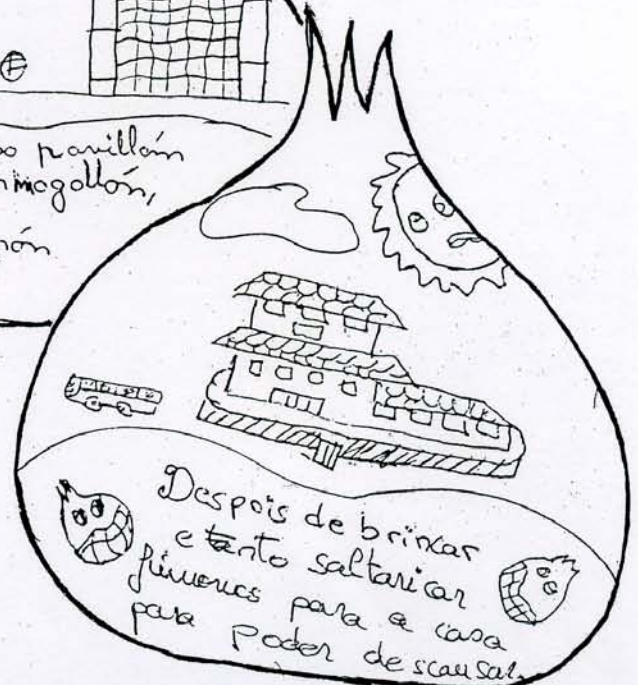 pavillón
mogollón,
Despois de brincar
e tanto saltaricar
fúmonos para a casa
para poder descansar.